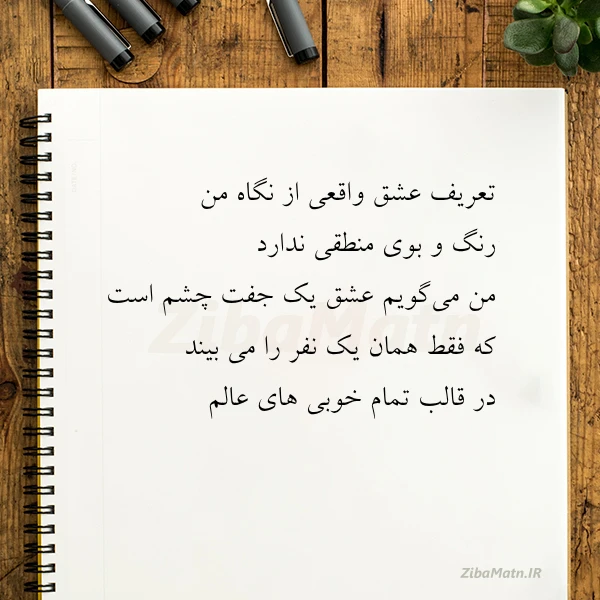 تعریف عشق واقعی از نگاه من
رنگ و بوی منطقی ندارد
من می‌گویم عشق یک جفت چشم است
که فقط همان یک نفر را می بیند
در قالب تمام خوبی های عالم
ZibaMatn
ZibaMatn.IR